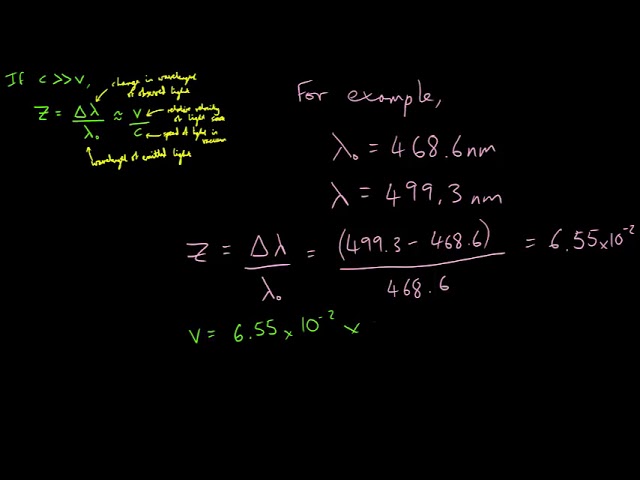 If c >> v,
change in wavelength of observed light
Z = Δλ/λ₀ ≈ v/c
relative velocity of light source
speed of light in vacuum
wavelength of emitted light
For example,
λ₀ = 468.6nm
λ = 499.3nm
Z = Δλ/λ₀ = (499.3 - 468.6)/468.6 = 6.55×10⁻²
v = 6.55 × 10⁻² ×